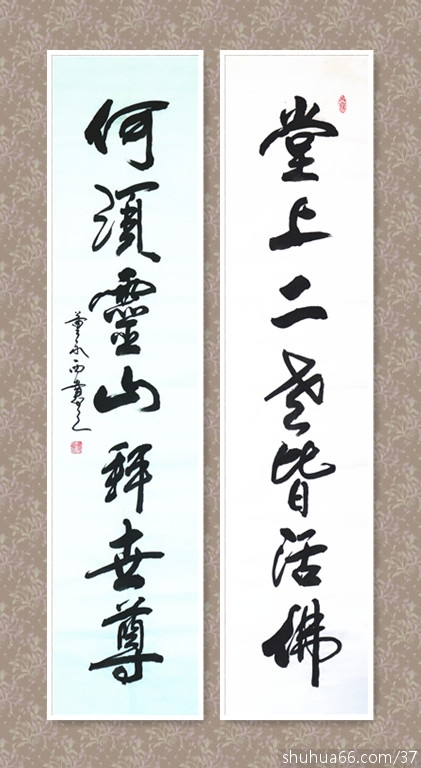 堂上二老皆活佛
何須靈山拜世尊
董永西
shuhua66.com/37